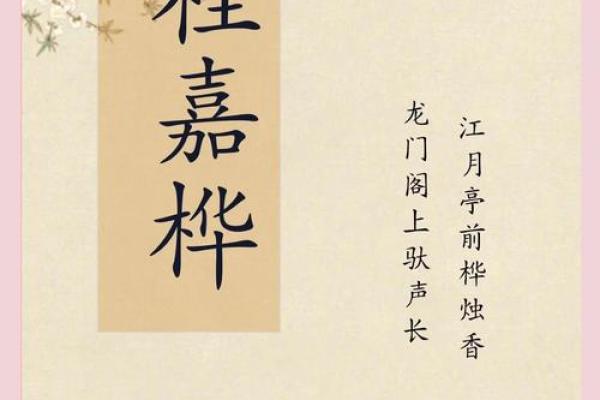 江月亭前桦烛香
龙门阁上驮声长
嘉桦